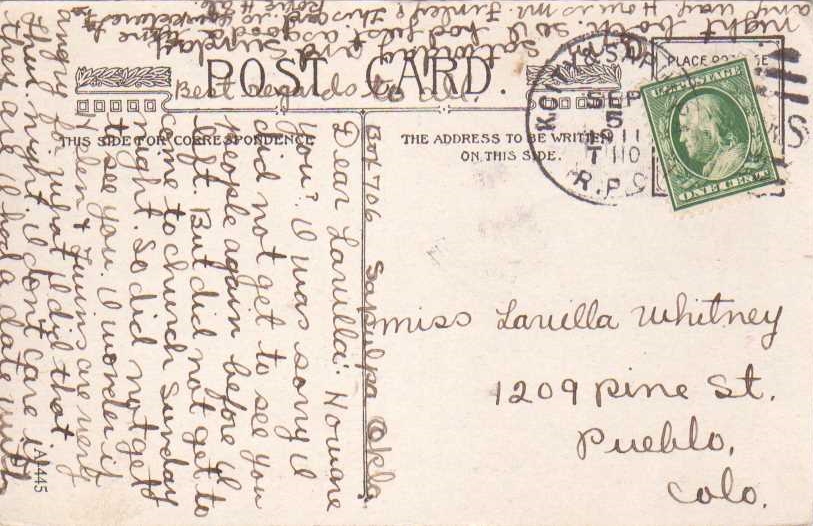 POST CARD.
THIS SIDE FOR CORRESPONDENCE
THE ADDRESS TO BE WRITTEN
ON THIS SIDE.
PLACE
U.S. POSTAGE
ONE CENT
SEP
5
1911
R.P.O.
Miss Lavilla Whitney
1209 Pine St.
Pueblo,
Colo.
Box 706 Sapulpa Okla.
Dear Lavilla: How are
you? I was sorry I
did not get to see you
people again before I
left. But did not get to
come to church Sunday
night. So did not get
to see you. I wonder if
Helen & Twins are very
angry for what I did that
night. I don't care if
they are. I had a date with
Saturday and Sunday
night both. so I had just as good a time
any way. How is Mr. Finley?
Best regards to all.
A-1445